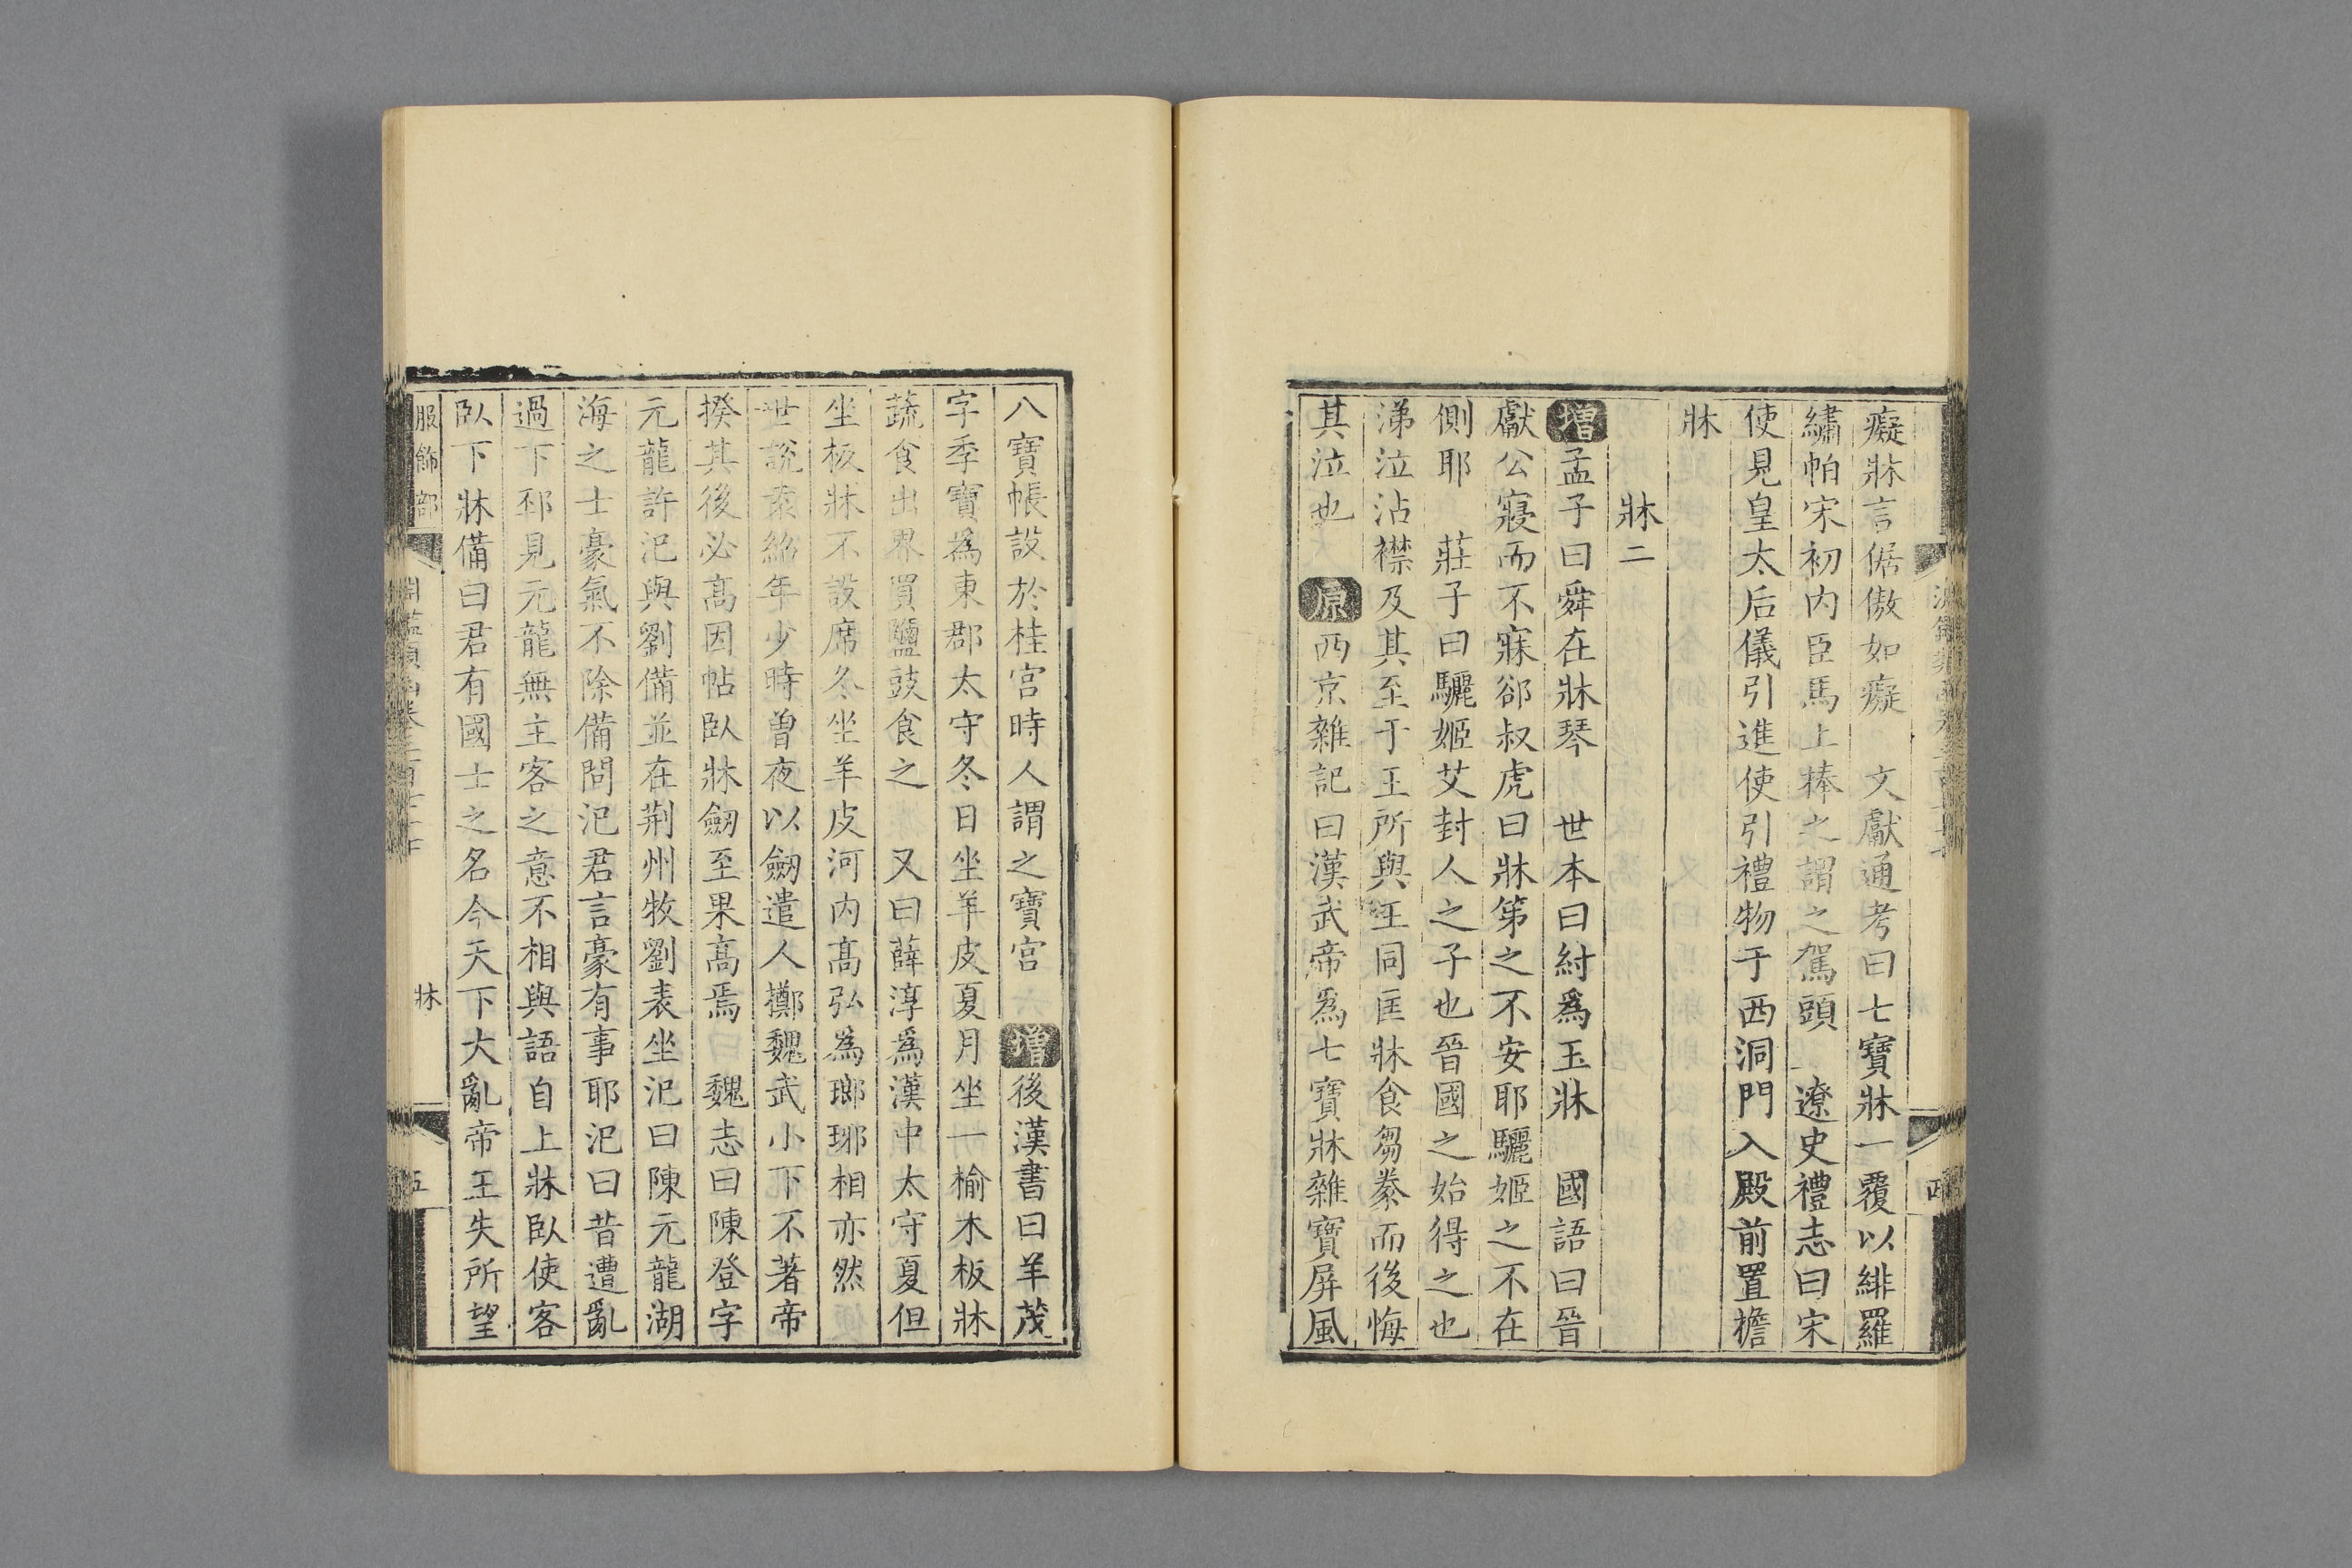 癡牀言倨傲如癡　文獻通考曰七寶牀一覆以緋羅
繡帕宋初内臣馬上捧之謂之駕頭　遼史禮志曰宋
使見皇太后儀引進使引禮物于西洞門入殿前置擔
牀
牀二
增孟子曰舜在牀琴　世本曰紂爲玉牀　國語曰晉
獻公寢而不寐郤叔虎曰牀笫之不安耶驪姬之不在
側耶　莊子曰驪姬艾封人之子也晉國之始得之也
涕泣沾襟及其至于王所與王同匡牀食芻豢而後悔
其泣也　原西京雜記曰漢武帝爲七寶牀雜寶屏風
八寶帳設於桂宫時人謂之寶宫　增後漢書曰羊茂
字季寶爲東郡太守冬日坐羊皮夏月坐一榆木板牀
蔬食出界買鹽豉食之　又曰薛淳爲漢中太守夏但
坐板牀不設席冬坐羊皮河内高弘爲瑯琊相亦然
世說袁紹年少時曾夜以劒遣人擲魏武小下不著帝
揆其後必高因帖臥牀劒至果高焉　魏志曰陳登字
元龍許汜與劉備並在荆州牧劉表坐汜曰陳元龍湖
海之士豪氣不除備問汜君言豪有事耶汜曰昔遭亂
過下邳見元龍無主客之意不相與語自上牀臥使客
臥下牀備曰君有國士之名今天下大亂帝王失所望
服飾部
牀
五